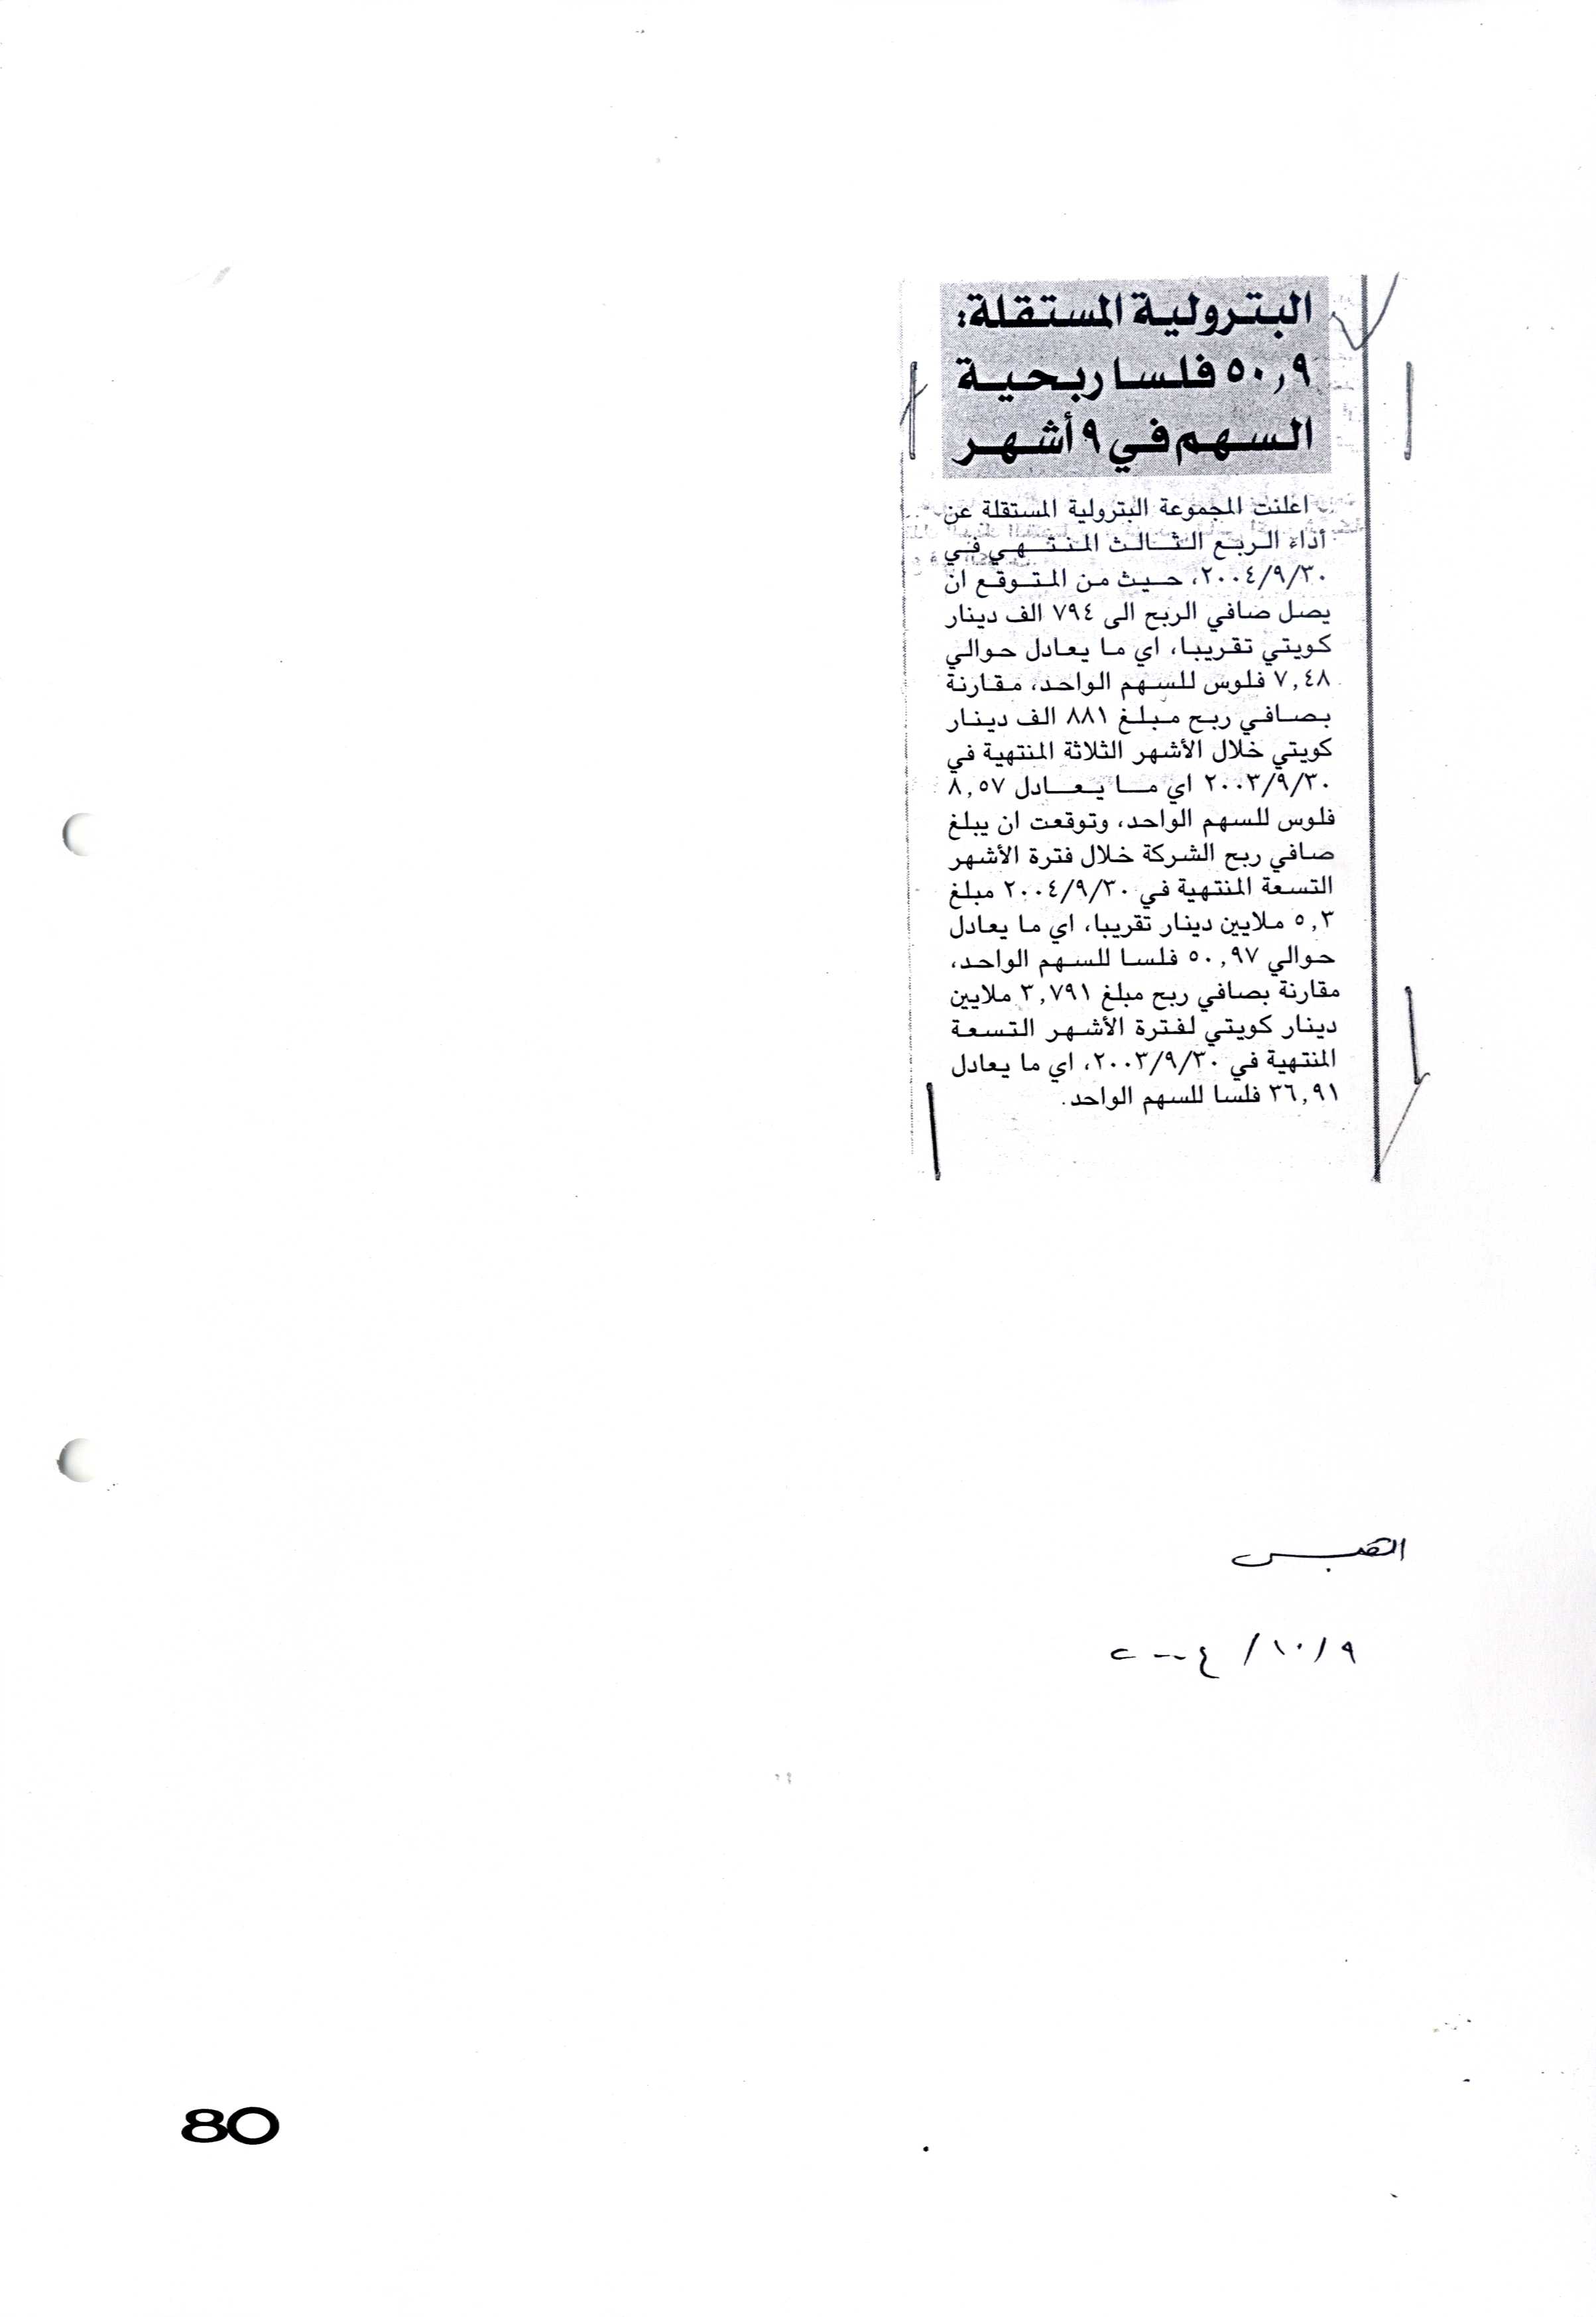 البترولية المستقلة:
٥٠,٩ فلسا ربحية
السهم في ٩ أشهر
اعلنت المجموعة البترولية المستقلة عن
أداء الربع الثالث المنتهي في
٢٠٠٤/٩/٣٠، حيث من المتوقع ان
يصل صافي الربح الى ٧٩٤ الف دينار
كويتي تقريبا، اي ما يعادل حوالي
٧,٤٨ فلوس للسهم الواحد، مقارنة
بصافي ربح مبلغ ٨٨١ الف دينار
كويتي خلال الأشهر الثلاثة المنتهية في
٢٠٠٣/٩/٣٠ اي ما يعادل ٨,٥٧
فلوس للسهم الواحد، وتوقعت ان يبلغ
صافي ربح الشركة خلال فترة الأشهر
التسعة المنتهية في ٢٠٠٤/٩/٣٠ مبلغ
٥,٣ ملايين دينار تقريبا، اي ما يعادل
حوالي ٥٠,٩٧ فلسا للسهم الواحد،
مقارنة بصافي ربح مبلغ ٣,٧٩١ ملايين
دينار كويتي لفترة الأشهر التسعة
المنتهية في ٢٠٠٣/٩/٣٠، اي ما يعادل
٣٦,٩١ فلسا للسهم الواحد.
القبس
٢٠٠٤/١٠/٩
80